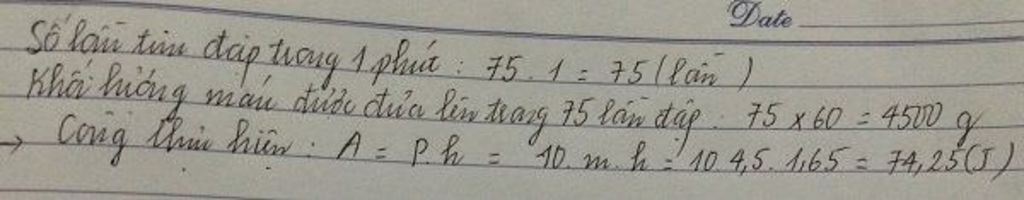 Date
Số lần tim đập trong 1 phút : 75 . 1 = 75 (lần )
Khối lượng máu được đưa lên trong 75 lần đập : 75 x 60 = 4500 g
→ Công thực hiện : A = P. h = 10. m. h = 10. 4,5. 1,65 = 74,25 (J)